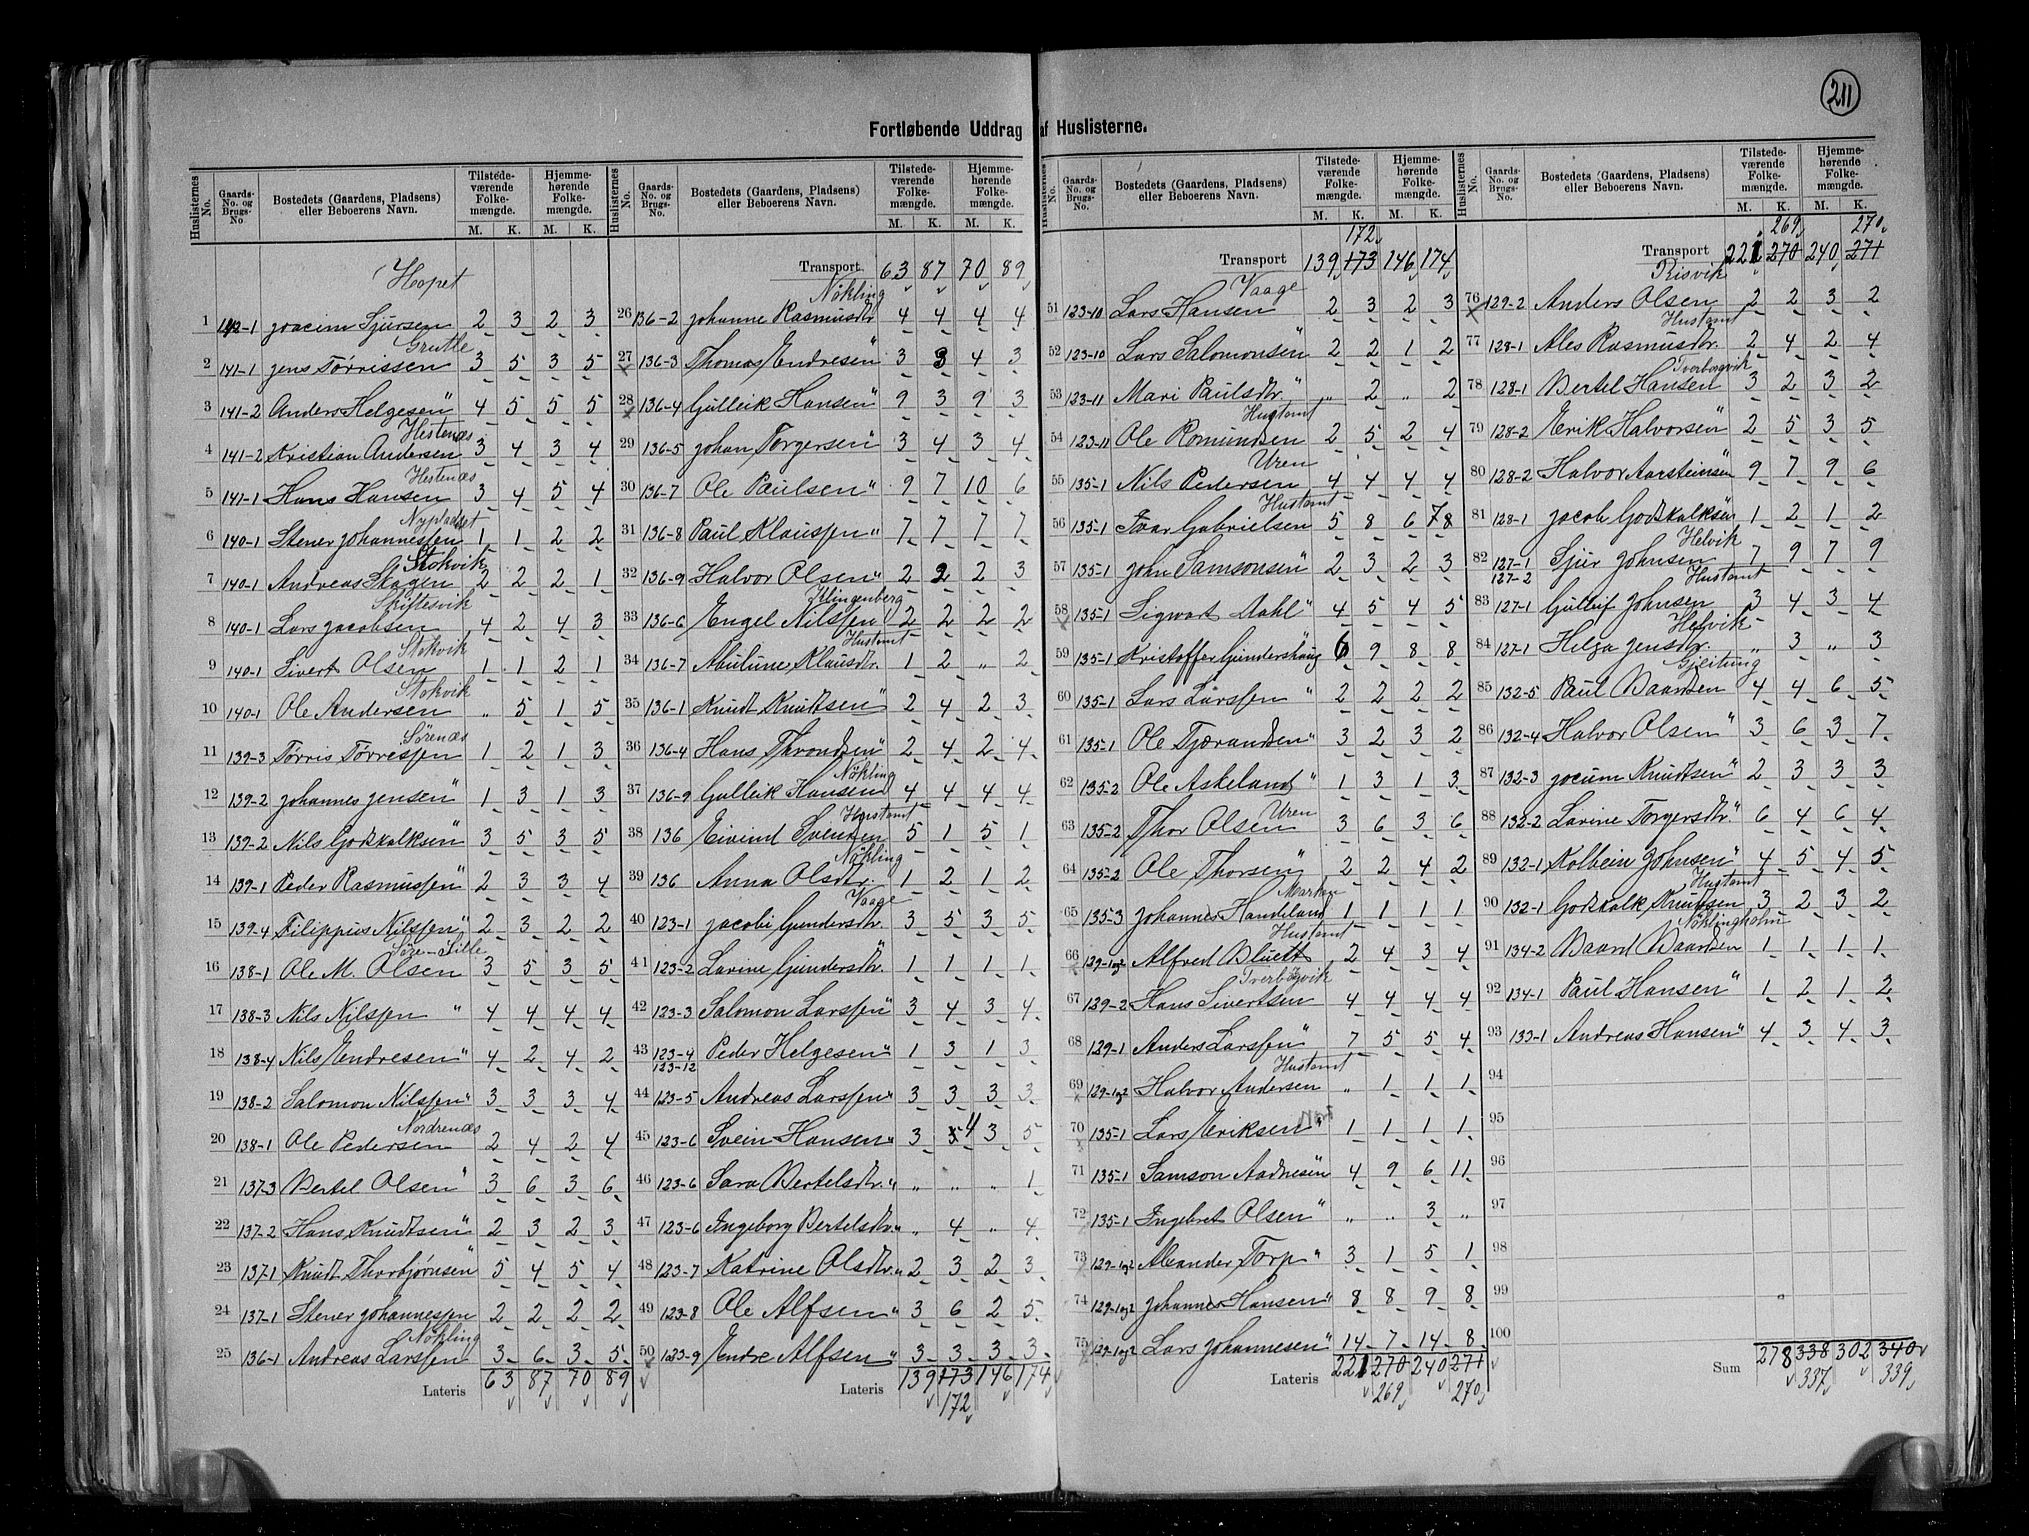 211
Fortløbende Uddrag af Huslisterne.
Huslisternes No. Gaards-No. og Brugs-No Bostedets (Gaardens, Pladsens) eller Beboerens Navn. Tilstedeværende Folkemængde. M. K. Hjemmehørende Folkemængde. M. K.
Hopet
1 142-1 Joacim Sjursen 2 3 2 3
Grutle
2 141-1 Jens Tørrissen 3 5 3 5
3 141-2 Anders Helgesen " 4 5 5 5
Hestenæs
4 141-2 Kristian Andersen 3 4 3 4
Hestenæs
5 141-1 Hans Hansen 3 4 5 4
Nypladset
6 140-1 Stener Johannessen 1 1 2 2
Stokvik
7 140-1 Andreas Skagen 2 2 2 1
Skiftesvik
8 140-1 Lars Jacobsen 4 2 4 3
Stokvik
9 140-1 Sivert Olsen 1 1 2 1
Stokvik
10 140-1 Ole Andersen " 5 1 5
Sørenæs
11 139-3 Tørris Tørressen 1 2 1 3
12 139-2 Johannes Jensen " 1 3 1 3
13 139-2 Nils Godskalksen " 3 5 3 5
14 139-1 Peder Rasmussen " 2 3 3 4
15 139-4 Filippus Nilssen " 2 3 2 2
16 138-1 Ole M. Olsen 3 5 3 5
17 138-3 Nils Nilssen " 4 4 4 4
18 138-4 Nils Endresen " 4 2 4 2
19 138-2 Salomon Nilssen " 3 3 3 4
Nordrenæs
20 138-1 Ole Pedersen 2 4 2 4
21 137-3 Bertel Olsen " 3 6 3 6
22 137-2 Hans Knudtsen " 2 3 2 3
23 137-1 Knudt Thorbjørnsen 5 4 5 4
24 137-1 Stener Johannessen 2 2 2 2
Nökling
25 136-1 Andreas Larssen 3 6 3 5
Lateris 63 87 70 89
Huslisternes No. Gaards-No. og Brugs-No Bostedets (Gaardens, Pladsens) eller Beboerens Navn. Tilstedeværende Folkemængde. M. K. Hjemmehørende Folkemængde. M. K.
Transport 63 87 70 89
Nökling
26 136-2 Johanne Rasmusdtr 4 4 4 4
27 136-3 Thomas Endresen " 3 3 4 3
28 136-4 Gulleik Hansen " 9 3 9 3
29 136-5 Johan Torgersen " 3 4 3 4
30 136-7 Ole Paulsen " 9 7 10 6
31 136-8 Paul Klaussen " 7 7 7 7
32 136-9 Halvor Olsen " 2 2 2 3
Klingenberg
33 136-6 Engel Nilssen 2 2 2 2
Hustomt
34 136-7 Abulune Klausdtr. 1 2 " 2
35 136-1 Knudt Knudtsen " 2 4 2 3
36 136-4 Hans Throndsen " 2 4 2 4
Nökling
37 136-9 Gulleik Hansen 4 4 4 4
Hustomt
38 136 Eivind Svendsen 5 1 5 1
Nökling
39 136 Anna Olsdtr. 1 2 1 2
Vaage
40 123-1 Jacobi Gundersdtr. 3 5 3 5
41 123-2 Larine Gundersdtr. 1 1 1 1
42 123-3 Salomon Larssen " 3 4 3 4
43 123-4 123-12 Peder Helgesen " 1 3 1 3
44 123-5 Andreas Larssen " 3 3 3 3
45 123-6 Svein Hansen " 3 5 4 3 5
46 123-6 Sara Bertelsdtr. " " " " 1
47 123-6 Ingeborg Bertelsdtr. " " 4 " 4
48 123-7 Katrine Olsdtr. " 2 3 2 3
49 123-8 Ole Alfsen " 3 6 2 5
50 123-9 Endre Alfsen " 3 3 3 3
Lateris 139 173 146 174
172
Huslisternes No. Gaards-No. og Brugs-No Bostedets (Gaardens, Pladsens) eller Beboerens Navn. Tilstedeværende Folkemængde. M. K. Hjemmehørende Folkemængde. M. K.
172
Transport 139 173 146 174
Vaage
51 123-10 Lars Hansen 2 3 2 3
52 123-10 Lars Salomonsen " 2 2 1 2
53 123-11 Mari Paulsdtr. " " 2 " 2
Hustomt
54 123-11 Ole Romundsen 2 5 2 4
Uren
55 135-1 Nils Pedersen 4 4 4 4
Hustomt
56 135-1 Ivar Gabrielsen 5 8 6 7 8
57 135-1 John Samsonsen " 2 3 2 3
58 135-1 Sigwart Dahl " 4 5 4 5
59 135-1 Kristoffer Gundershaug 6 9 8 8
60 135-1 Lars Larssen " 2 2 2 2
61 135-1 Ole Tjærandsen " 3 2 3 2
62 135-2 Ole Askeland " 1 3 1 3
Uren
63 135-2 Thor Olsen 3 6 3 6
64 135-2 Ole Thorsen " 2 2 4 2
Marken
65 135-3 Johannes Handeland 1 1 1 1
Hustomt
66 129-1og2 Alfred Bluett 2 4 3 4
Tverborgvik
67 129-2 Hans Sivertsen 4 4 4 4
68 129-1 Anders Larssen " 7 5 5 4
Hustomt
69 129-1og2 Halvor Andersen " 1 1 1
70 135-1 Lars Eriksen " 1 1 1 1
71 135-1 Samson Aadnesen " 4 9 6 11
72 135-1 Ingebret Olsen " " " 3 "
73 129-1og2 Alexander Torp " 3 1 5 1
74 129-1og2 Johannes Hansen " 8 8 9 8
75 129-1og2 Lars Johannesen " 14 7 14 8
Lateris 221 270 240 271
269 270
Huslisternes No. Gaards-No. og Brugs-No Bostedets (Gaardens, Pladsens) eller Beboerens Navn. Tilstedeværende Folkemængde. M. K. Hjemmehørende Folkemængde. M. K.
269 270
Transport 221 270 240 271
Risvik
76 129-2 Anders Olsen 2 2 3 2
Hustomt
77 128-1 Ales Rasmusdtr. 2 4 2 4
Tverborgvik
78 128-1 Bertel Hansen 3 2 3 2
79 128-2 Erik Halvorsen " 2 5 3 5
80 128-2 Halvor Aarsteinsen " 9 7 9 6
81 128-1 Jacob Godskalksen " 1 2 1 2
Helvik
82 127-1 127-2 Sjur Johnsen 7 9 7 9
Hustomt
83 127-1 Gulleif Johnsen 3 4 3 4
Helvik
84 127-1 Helga Jensdtr. " 3 " 3
Gjeitung
85 132-5 Paul Baardsen 4 4 6 5
86 132-4 Halvor Olsen " 3 6 3 7
87 132-3 Jocum Knudtsen " 2 3 3 3
88 132-2 Larine Torgersdtr. " 6 4 6 4
89 132-1 Kolbein Johnsen " 4 5 4 5
Hustomt
90 132-1 Godskalk Knudsen 3 2 3 2
Nöklingholm
91 134-2 Baard Baardsen 1 1 1 1
92 134-1 Paul Hansen " 1 2 1 2
93 133-1 Andreas Hansen " 4 3 4 3
94
95
96
97
98
99
100
Sum 278 338 302 340
337 339